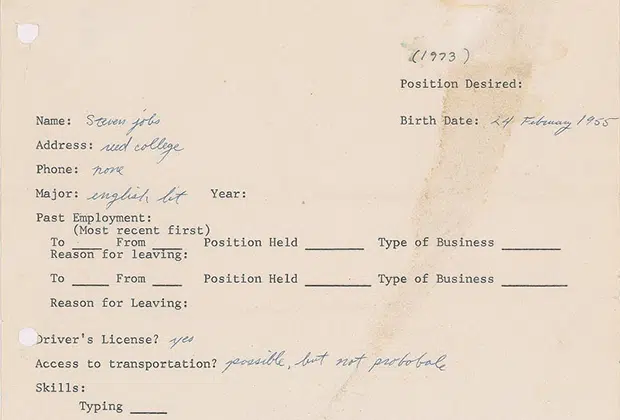 (1973)
Position Desired:
Name: Steven jobs Birth Date: 24 February 1955
Address: reed college
Phone: none
Major: english lit Year:
Past Employment:
(Most recent first)
To ____ From ____ Position Held ________ Type of Business ________
Reason for leaving:
To _____ From ____ Position Held _________ Type of Business _________
Reason for Leaving:
Driver's License? yes
Access to transportation? possible, but not probobale
Skills:
Typing _____